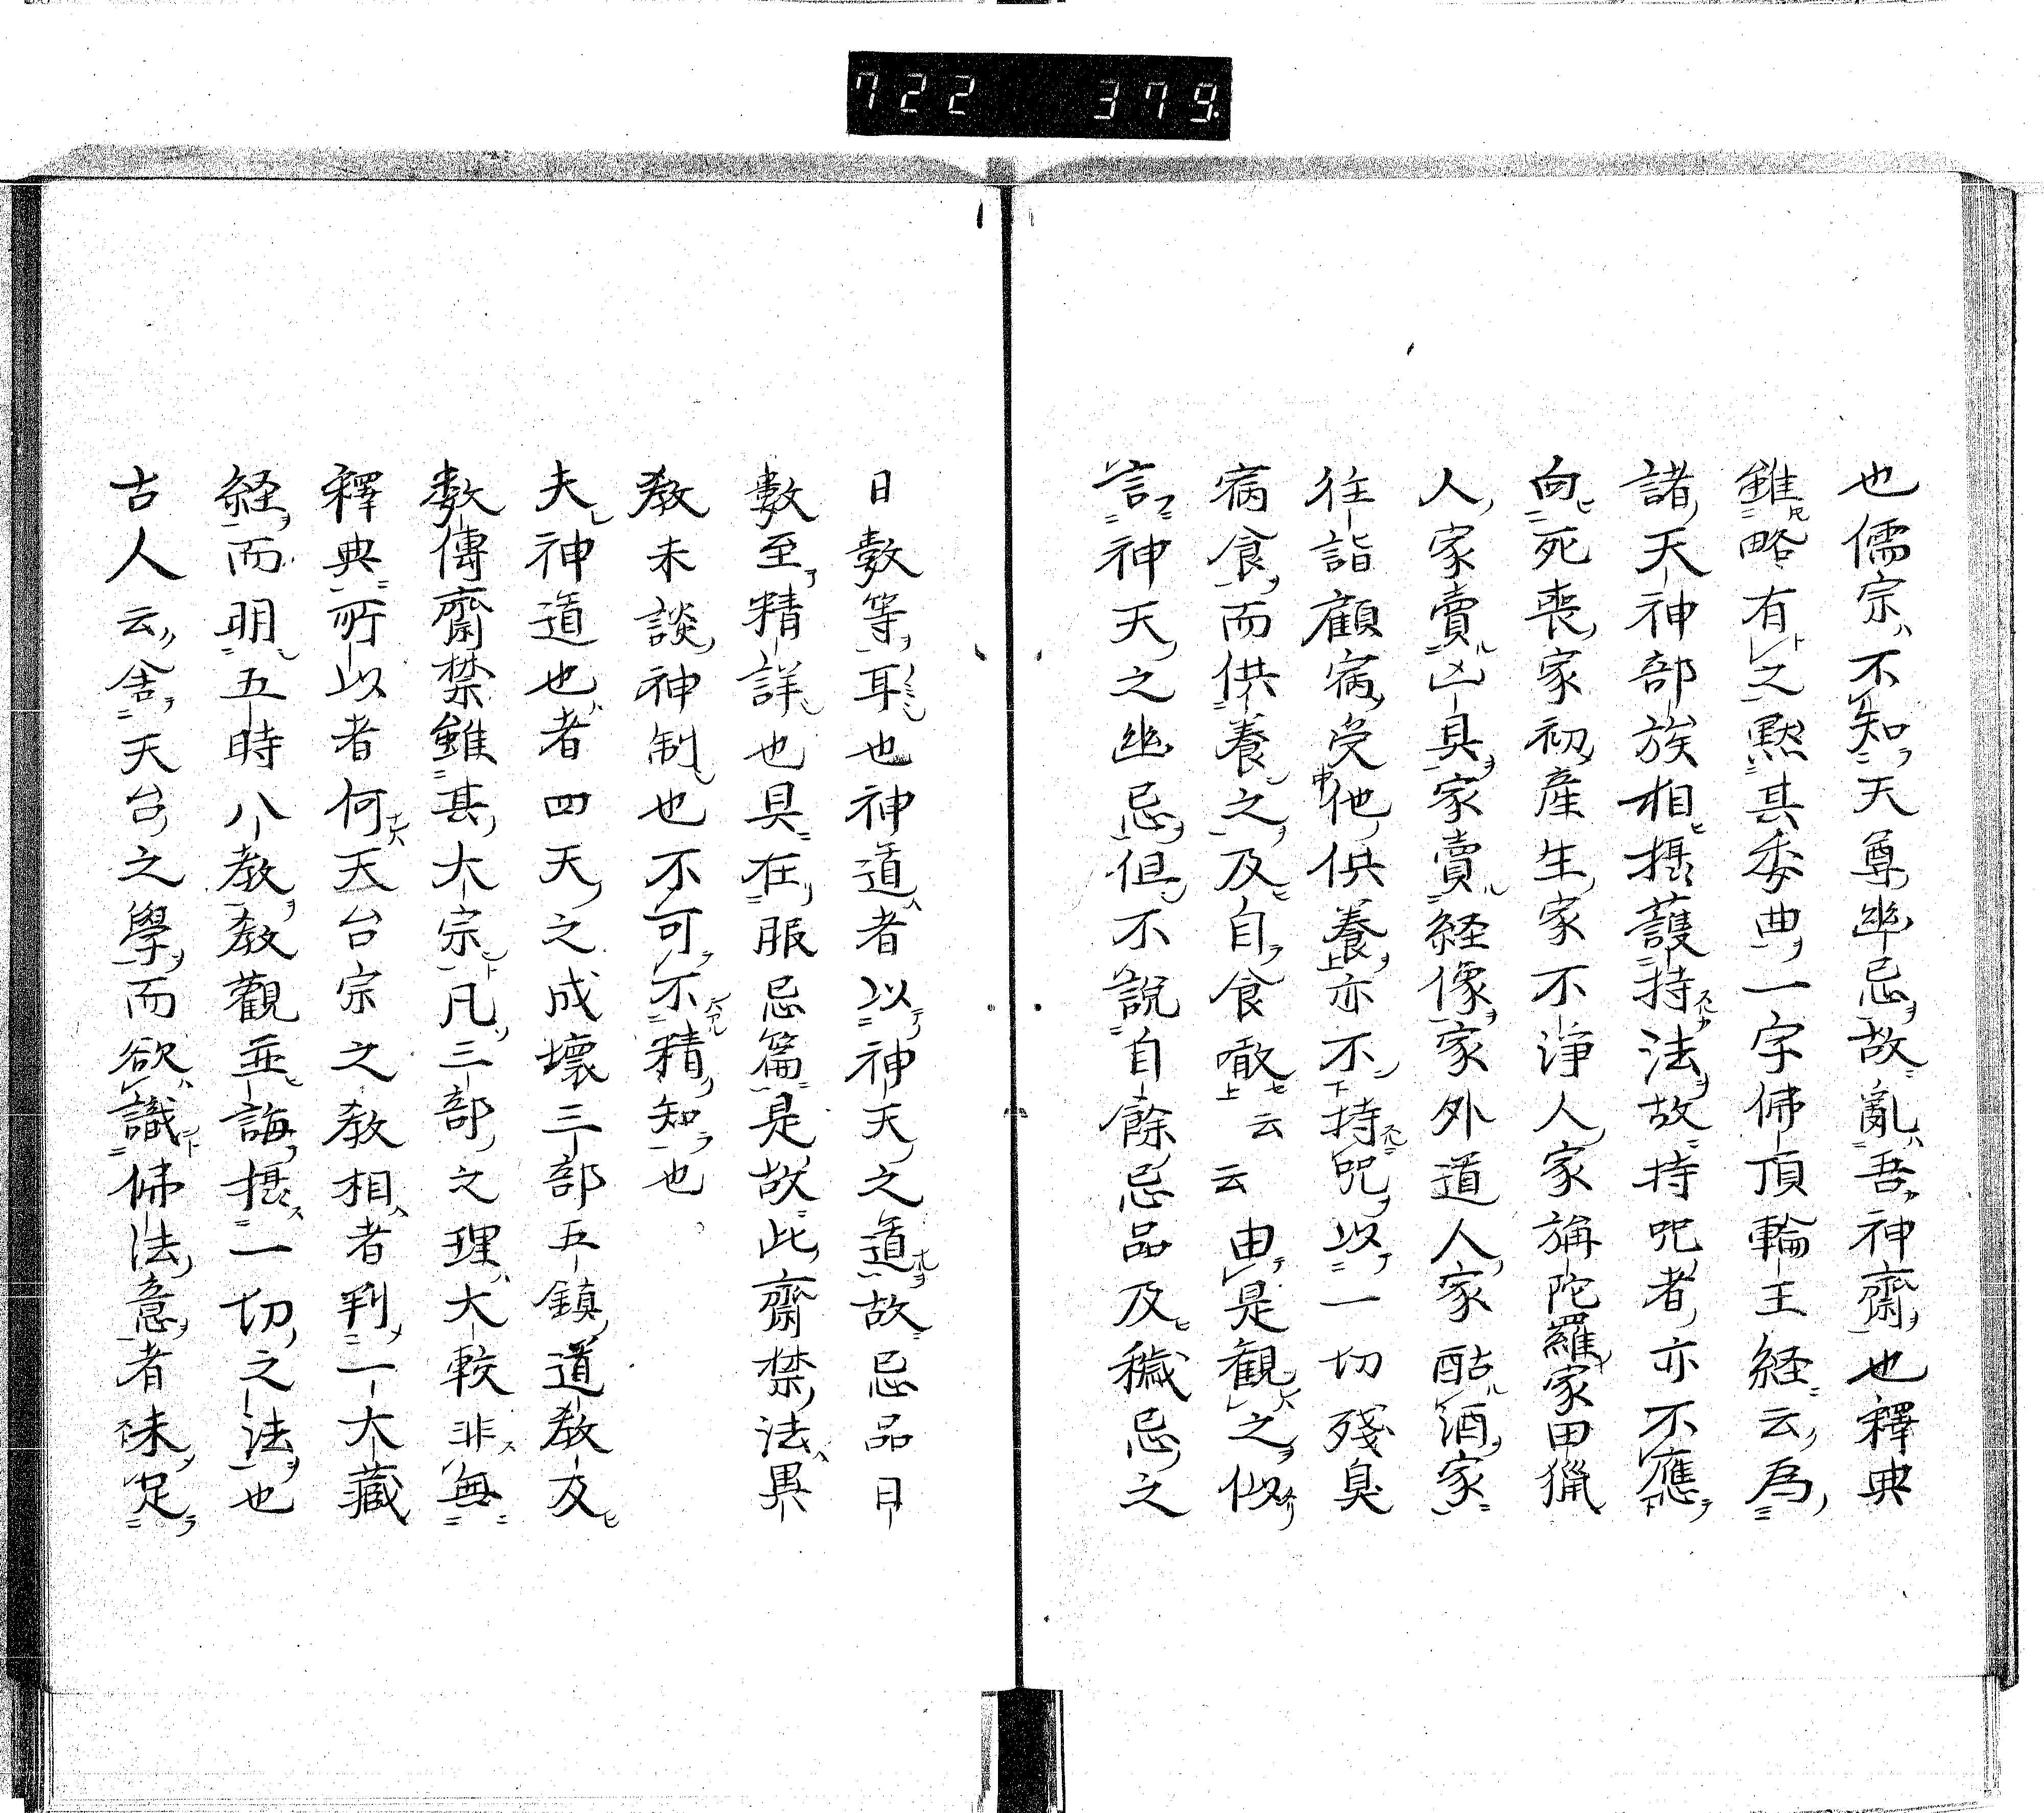 722 379
也儒宗不知天尊幽忌故亂吾神齋也釋典
雖略有之黙其委曲一字佛頂輪王経云為
諸天神部族相攝護持法故持咒者亦不應
向死喪家初產生家不淨人家旃陀羅家田獵
人家賣凶具家賣経像家外道人家酤酒家
往詣顧病受他供養亦不持咒以一切殘臭
病食而供養之及自食噉云云由是観之似
言神天之幽忌但不說自餘忌品及穢忌之
日數等耳也神道者以神天之道故忌品日
數至精詳也具在服忌篇是故此齋禁法異
教未談神制也不可不精知也
夫神道也者四天之成壞三部五鎮道教及
數傳齋禁雖甚大宗凡三部之理大較非無
釋典所以者何天台宗之教相者判一大藏
経而明五時八教教觀並誨攝一切之法也
古人云舍天台之學而欲識佛法意者未足